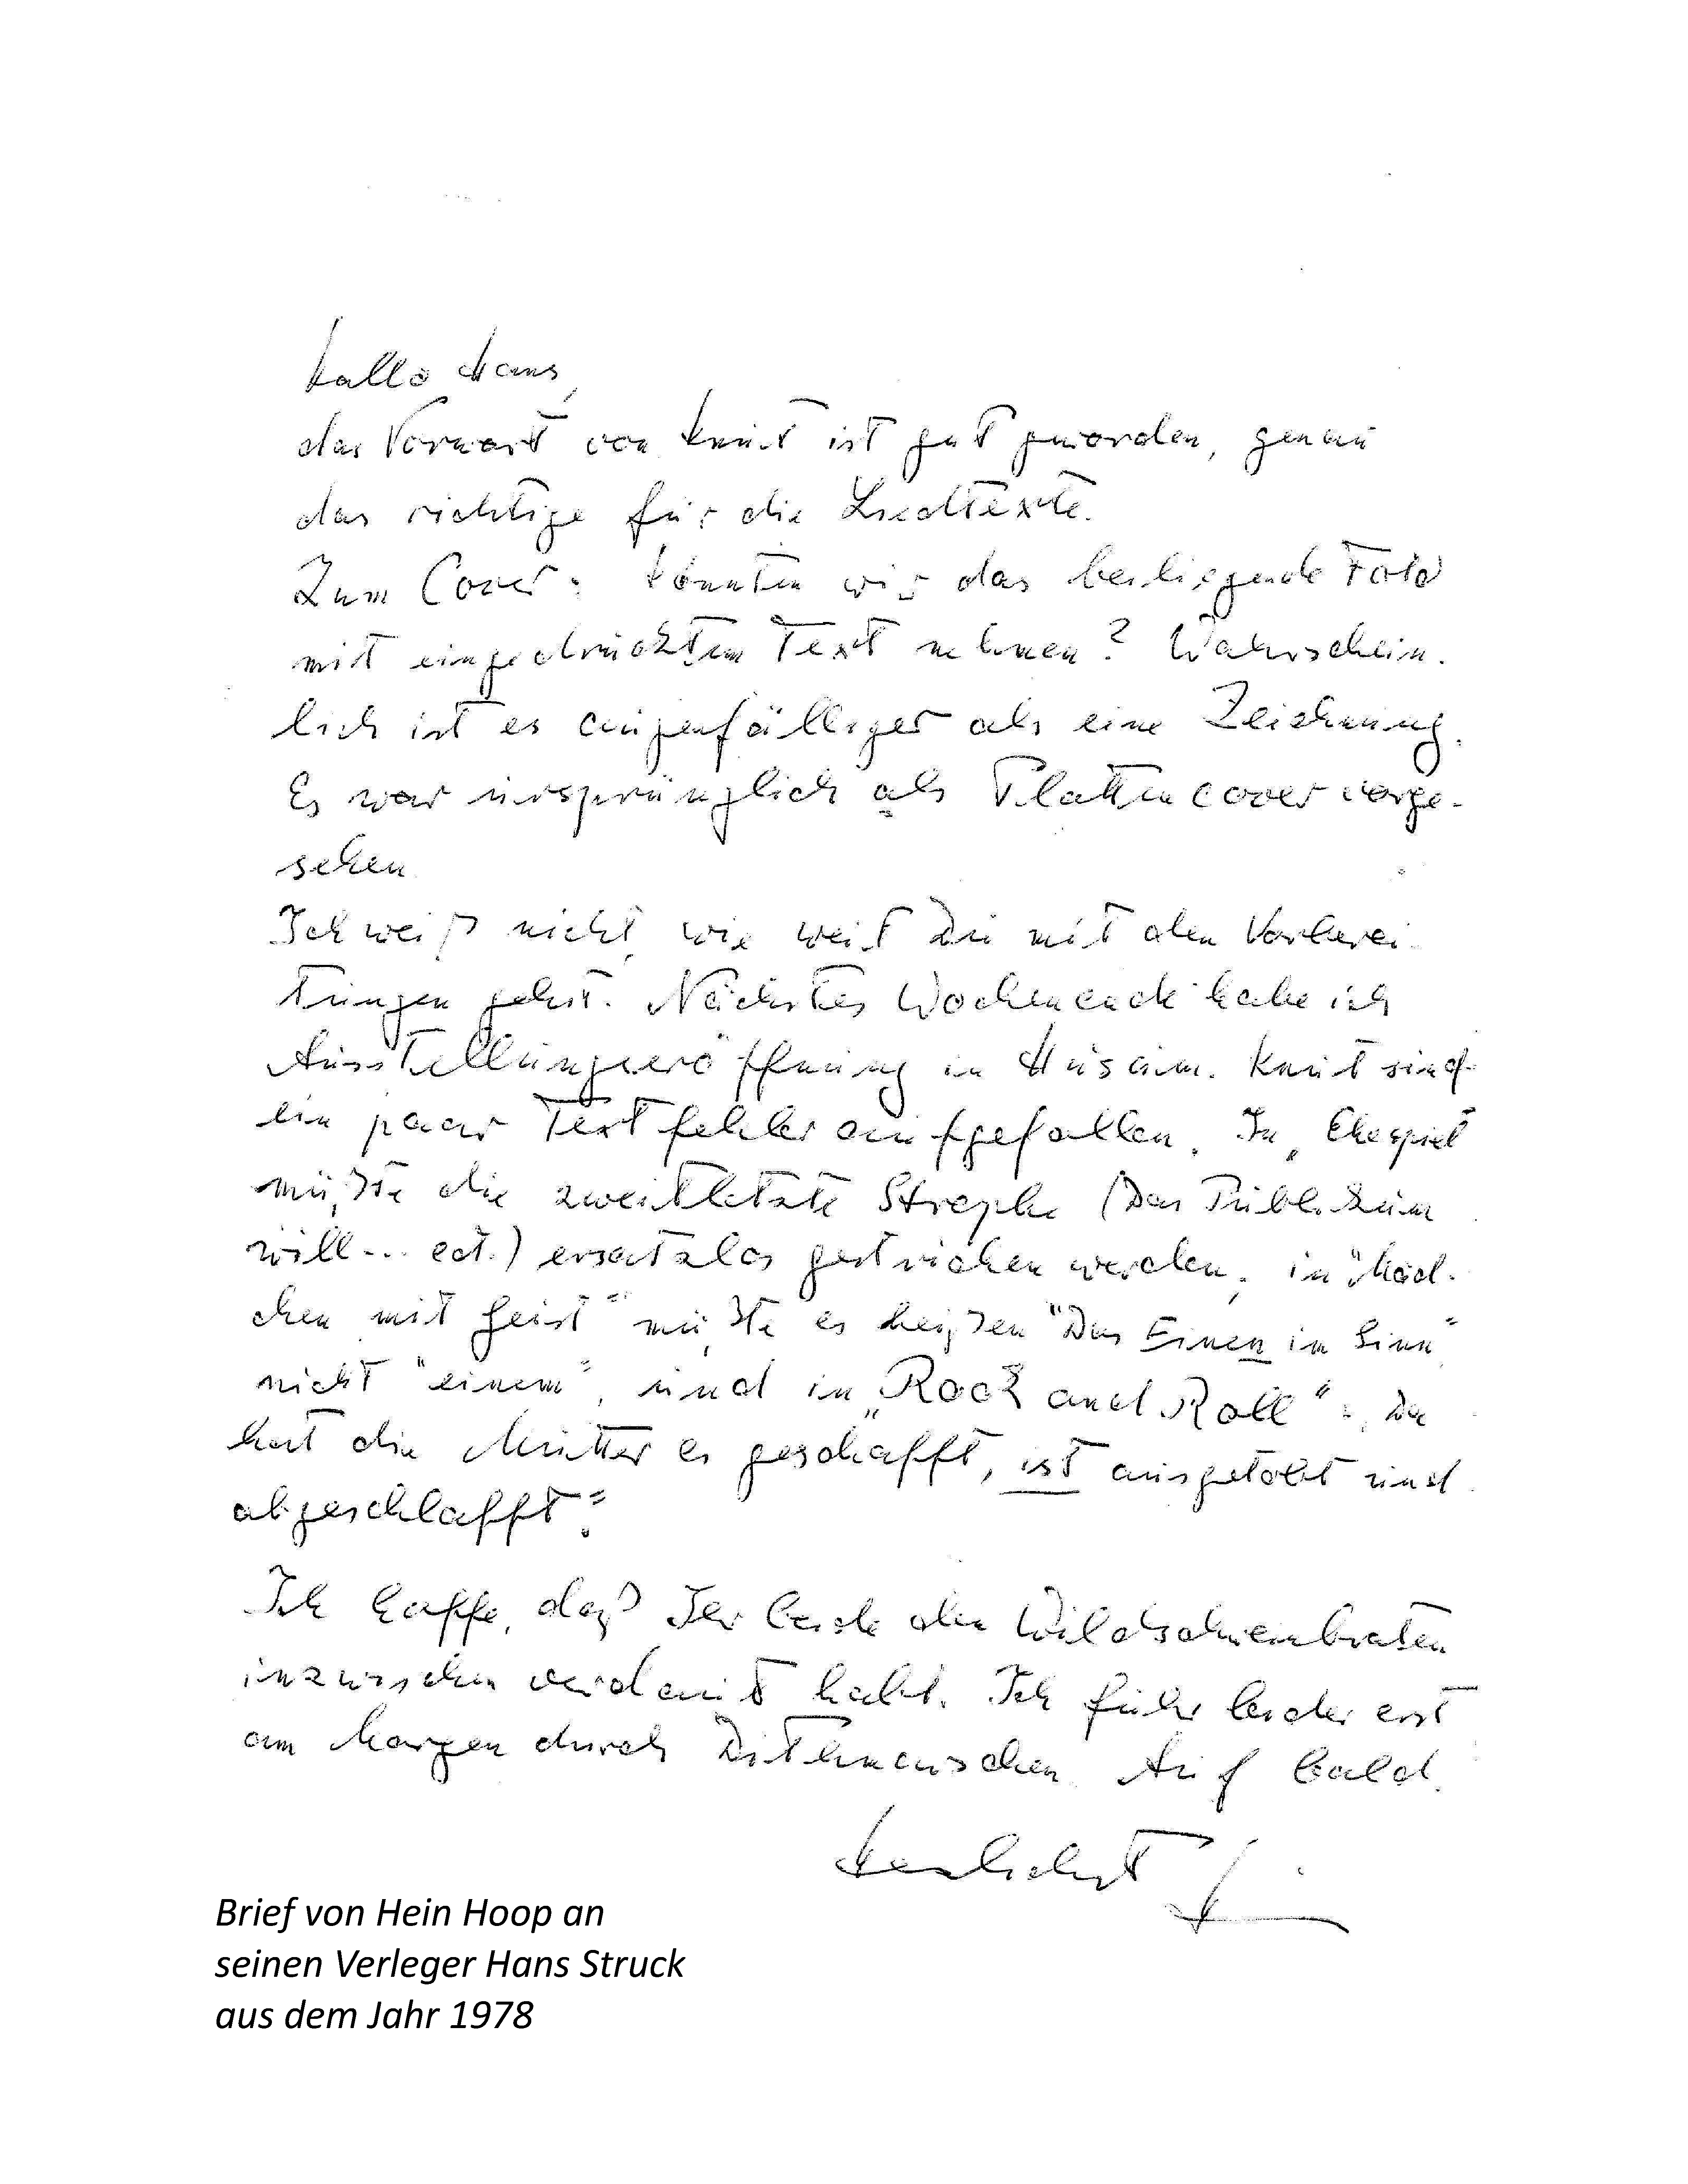 Hallo Hans,
das Vorwort von Knut ist gut geworden, genau
das richtige für die Liedtexte.
Zum Cover: Könnten wir das beiliegende Foto
mit eingedrucktem Text nehmen? Wahrschein-
lich ist es augenfälliger als eine Zeichnung.
Es war ursprünglich als Plattencover vorge-
sehen.
Ich weiß nicht, wie weit Du mit den Vorberei-
tungen gehst. Nächstes Wochenende habe ich
Ausstellungseröffnung in Husum. Knut sind
ein paar Textfehler aufgefallen. In „Ehespiel
müßte die zweitletzte Strophe (Das Publikum
will... ect.) ersatzlos gestrichen werden, in "Mäd-
chen mit Geist" müßte es heißen "Das Einen im Sinn"
nicht "einem", und in „Rock and Roll": Da
hat die Mutter es geschafft, ist ausgetobt und
abgeschlafft"
Ich hoffe, daß Ihr beide den Wildschweinbraten
inzwischen verdaut habt. Ich fuhr leider erst
am Morgen durch Dithmarschen. Auf bald.
Herzlichst
Brief von Hein Hoop an
seinen Verleger Hans Struck
aus dem Jahr 1978